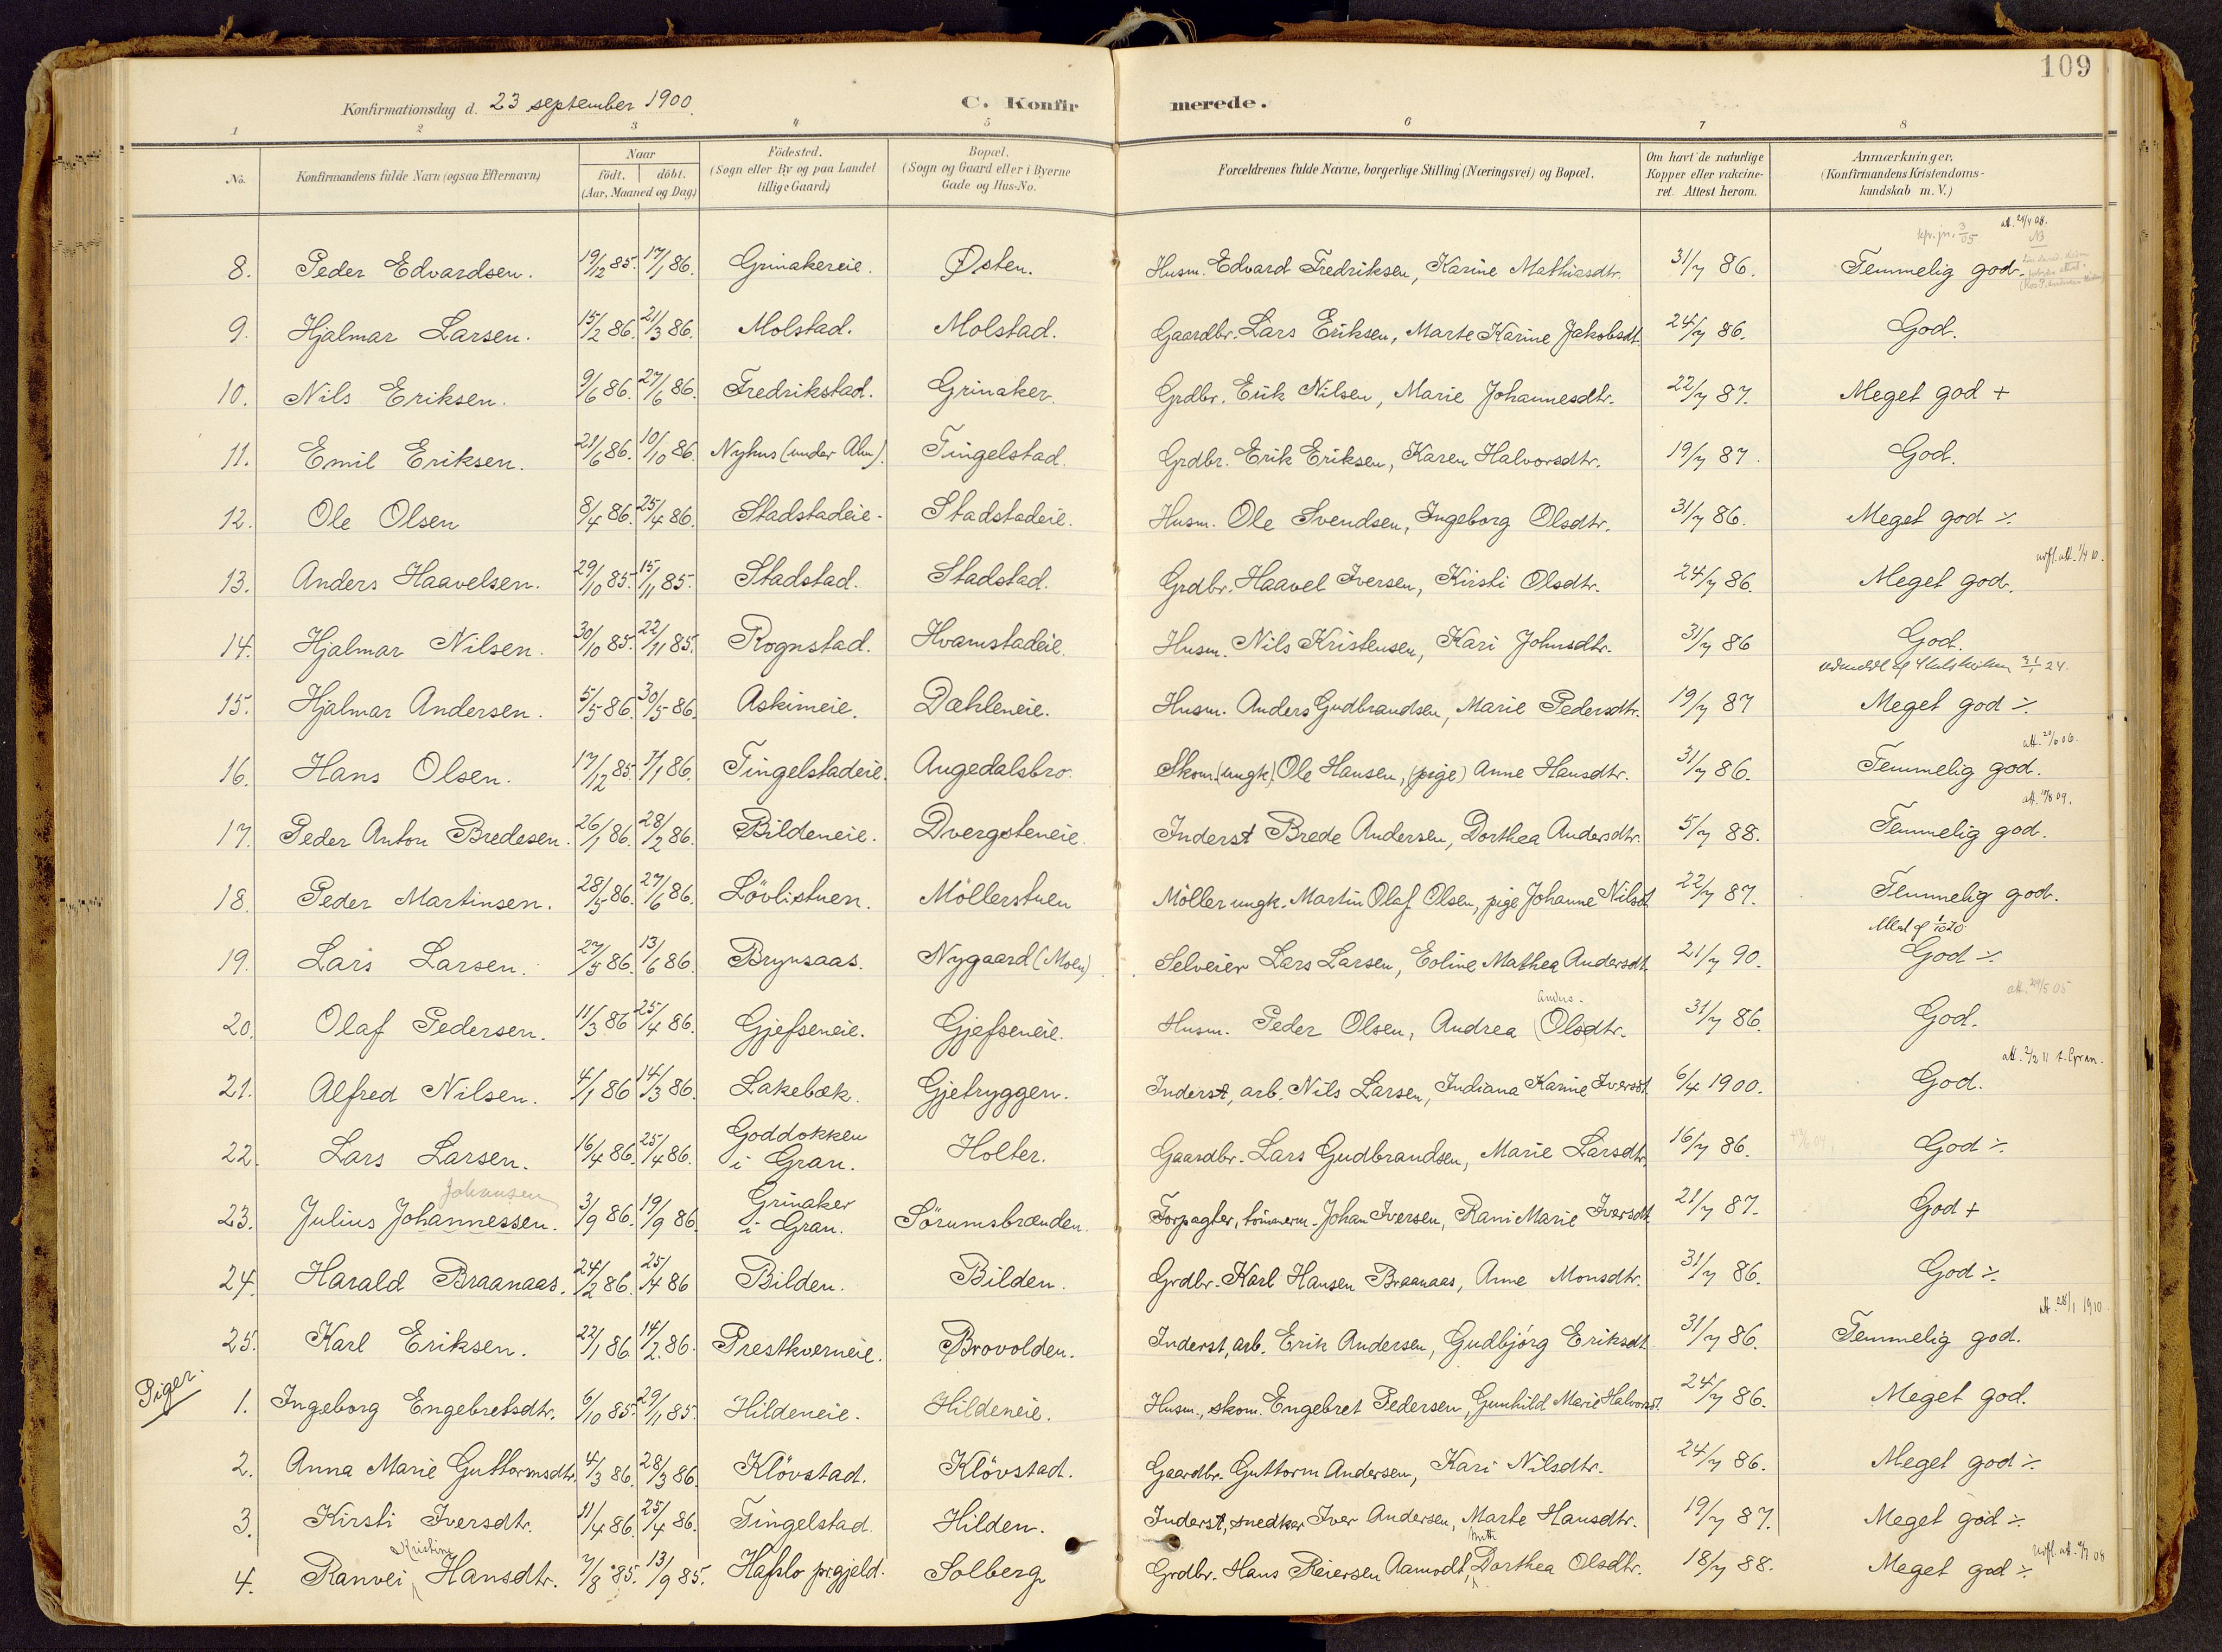 109
Konfirmationsdag d. 23 september 1900.
C. Konfirmerede.
1 2 3 4 5 6 7 8
No.
Konfirmandens fulde Navn (ogsaa Efternavn)
Naar
födt. döbt.
(Aar, Maaned og Dag)
Födested.
(Sogn eller By og paa Landet
tillige Gaard)
Bopæl.
(Sogn og Gaard eller i Byerne
Gade og Hus-No.
Forældrenes fulde Navne, borgerlige Stilling (Næringsvei) og Bopæl.
Om havt de naturlige
Kopper eller vakcine-
ret. Attest herom.
Anmærkninger.
(Konfirmandens Kristendoms-
kundskab m. V.)
8. Peder Edvardsen. 19/12 85. 17/1 86. Grinakereie. Østen. Husm. Edvard Fredriksen, Karine Mathiasdtr. 31/7 86. Temmelig god.
9. Hjalmar Larsen. 15/2 86. 21/3 86. Molstad. Molstad. Gaardbr. Lars Eriksen, Marte Karine Jakobsdt. 24/7 86. God.
10. Nils Eriksen. 9/6 86. 27/6 86. Fredrikstad. Grinaker. Grdbr. Erik Nilsen, Marie Johannesdtr. 22/7 87. Meget god +
11. Emil Eriksen. 21/6 86. 10/10 86. Nyhus (under Alm). Tingelstad. Grdbr. Erik Eriksen, Karen Halvorsdtr. 19/7 87. God.
12. Ole Olsen 8/4 86. 25/4 86. Stadstadeie. Stadstadeie. Husm. Ole Svendsen, Ingeborg Olsdtr. 31/7 86. Meget god ⁒
13. Anders Haavelsen. 29/10 85. 15/11 85. Stadstad. Stadstad. Grdbr. Haavel Iversen, Kirsti Olsdtr. 24/7 86. Meget god.
14. Hjalmar Nilsen. 30/10 85. 22/11 85. Rognstad. Hvamstadeie. Husm. Nils Kristensen, Kari Johnsdtr. 31/7 86 God.
15. Hjalmar Andersen. 5/5 86. 30/5 86. Askimeie. Dæhleneie. Husm. Anders Gudbrandsen, Marie Pedersdtr. 19/7 87 Meget god ⁒
att. 20/6 06.
16. Hans Olsen. 17/12 85. 7/1 86. Tingelstadeie. Augedalsbro. Skom. (ungk) Ole Hansen, (pige) Anne Hansdtr. 31/7 86. Temmelig god.
17. Peder Anton Bredesen. 26/1 86. 28/2 86. Bildeneie. Dvergsteneie. Inderst Brede Andersen, Dorthea Andersdtr. 5/7 88. Temmelig god.
18. Peder Martinsen. 28/5 86. 27/6 86. Lövlistuen. Möllerstuen Möller ungk. Martin Olaf Olsen, pige Johanne Nilsdt. 22/7 87. Temmelig god.
19. Lars Larsen. 27/5 86. 13/6 86. Brynsaas. Nygaard (Moen). Selveier Lars Larsen, Eoline Mathea Andersdt. 21/7 90. God ⁒
att. 29/5 05
Anders-
20. Olaf Pedersen. 11/3 86 25/4 86. Gjefseneie. Gjefseneie. Husm. Peder Olsen, Andrea (Olsdtr. 31/7 86. God.
att. 2/2 11 t. Gran.
21. Alfred Nilsen. 4/1 86 14/3 86. Lakebæk. Gjetryggen. Inderst, arb. Nils Larsen, Indiana Karine Iversdt. 6/4 1900. God.
22. Lars Larsen. 16/4 86. 25/4 86. Goddokken i Gran. Holter. Gaardbr. Lars Gudbrandsen, Marie Larsdtr. 16/7 86. God ⁒
Johansen
23. Julius Johannessen. 3/9 86. 19/9 86. Grinaker i Gran. Sörumsbrænden. Forpagter, tömmerm. Johan Iversen, Rani Marie Iversdt. 21/7 87. God +
24. Harald Braanaas. 24/2 86. 25/4 86 Bilden. Bilden. Grdbr. Karl Hansen Braanaas, Anne Monsdtr. 31/7 86. God ⁒
att. 28/1 1910.
25. Karl Eriksen. 22/1 86 14/2 86. Prestkverneie. Brovolden. Inderst, arb. Erik Andersen, Gudbjörg Eriksdt. 31/7 86. Temmelig god.
Piger.
1. Ingeborg Engebretsdtr. 6/10 85. 29/11 85. Hildeneie. Hildeneie. Husm., skom. Engebret Pedersen, Gunhild Marie Halvorsdt. 24/7 86. Meget god.
2. Anna Marie Guttormsdtr. 4/3 86. 28/3 86 Klövstad. Klövstad. Gaardbr. Guttorm Andersen, Kari Nilsdtr. 24/7 86. Meget god ⁒
3. Kirsti Iversdtr. 11/4 86. 25/4 86. Tingelstad. Hilden. Inderst, snedker Iver Andersen, Marte Hansdtr. 19/7 87. Meget god ⁒
Kristine
4. Ranvei Hansdtr. 7/8 85. 13/9 85. Hafslo prgjeld. Solberg Grdbr. Hans Reiersen Aamodt, Dorthea Olsdtr. 18/7 88. Meget god ⁒